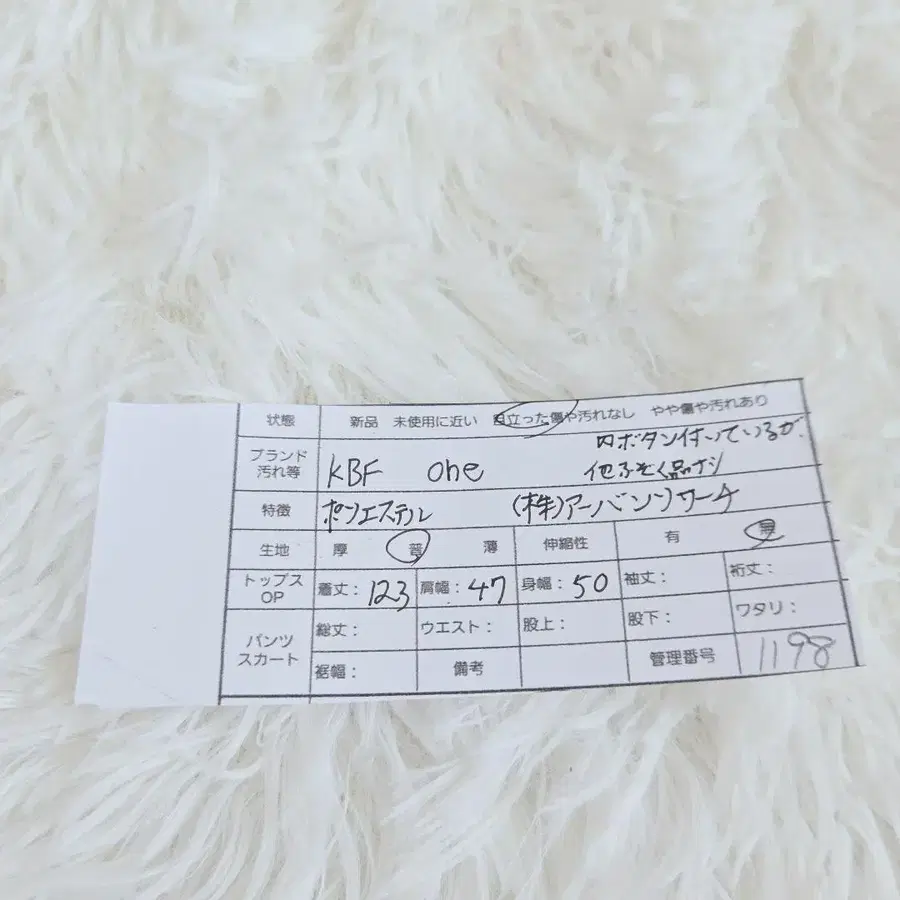 状態 新品 未使用に近い 目立った傷や汚れなし やや傷や汚れあり
ブランド 汚れ等 KBF one 内ボタン付いているが、
他ふぞく品ナシ
特徴 ポリエステル (株)アーバンリサーチ
生地 厚 普 薄 伸縮性 有 無
トップス OP 着丈: 123 肩幅: 47 身幅: 50 袖丈: 裄丈:
パンツ スカート 総丈: ウエスト: 股上: 股下: ワタリ:
裾幅: 備考 管理番号 1198